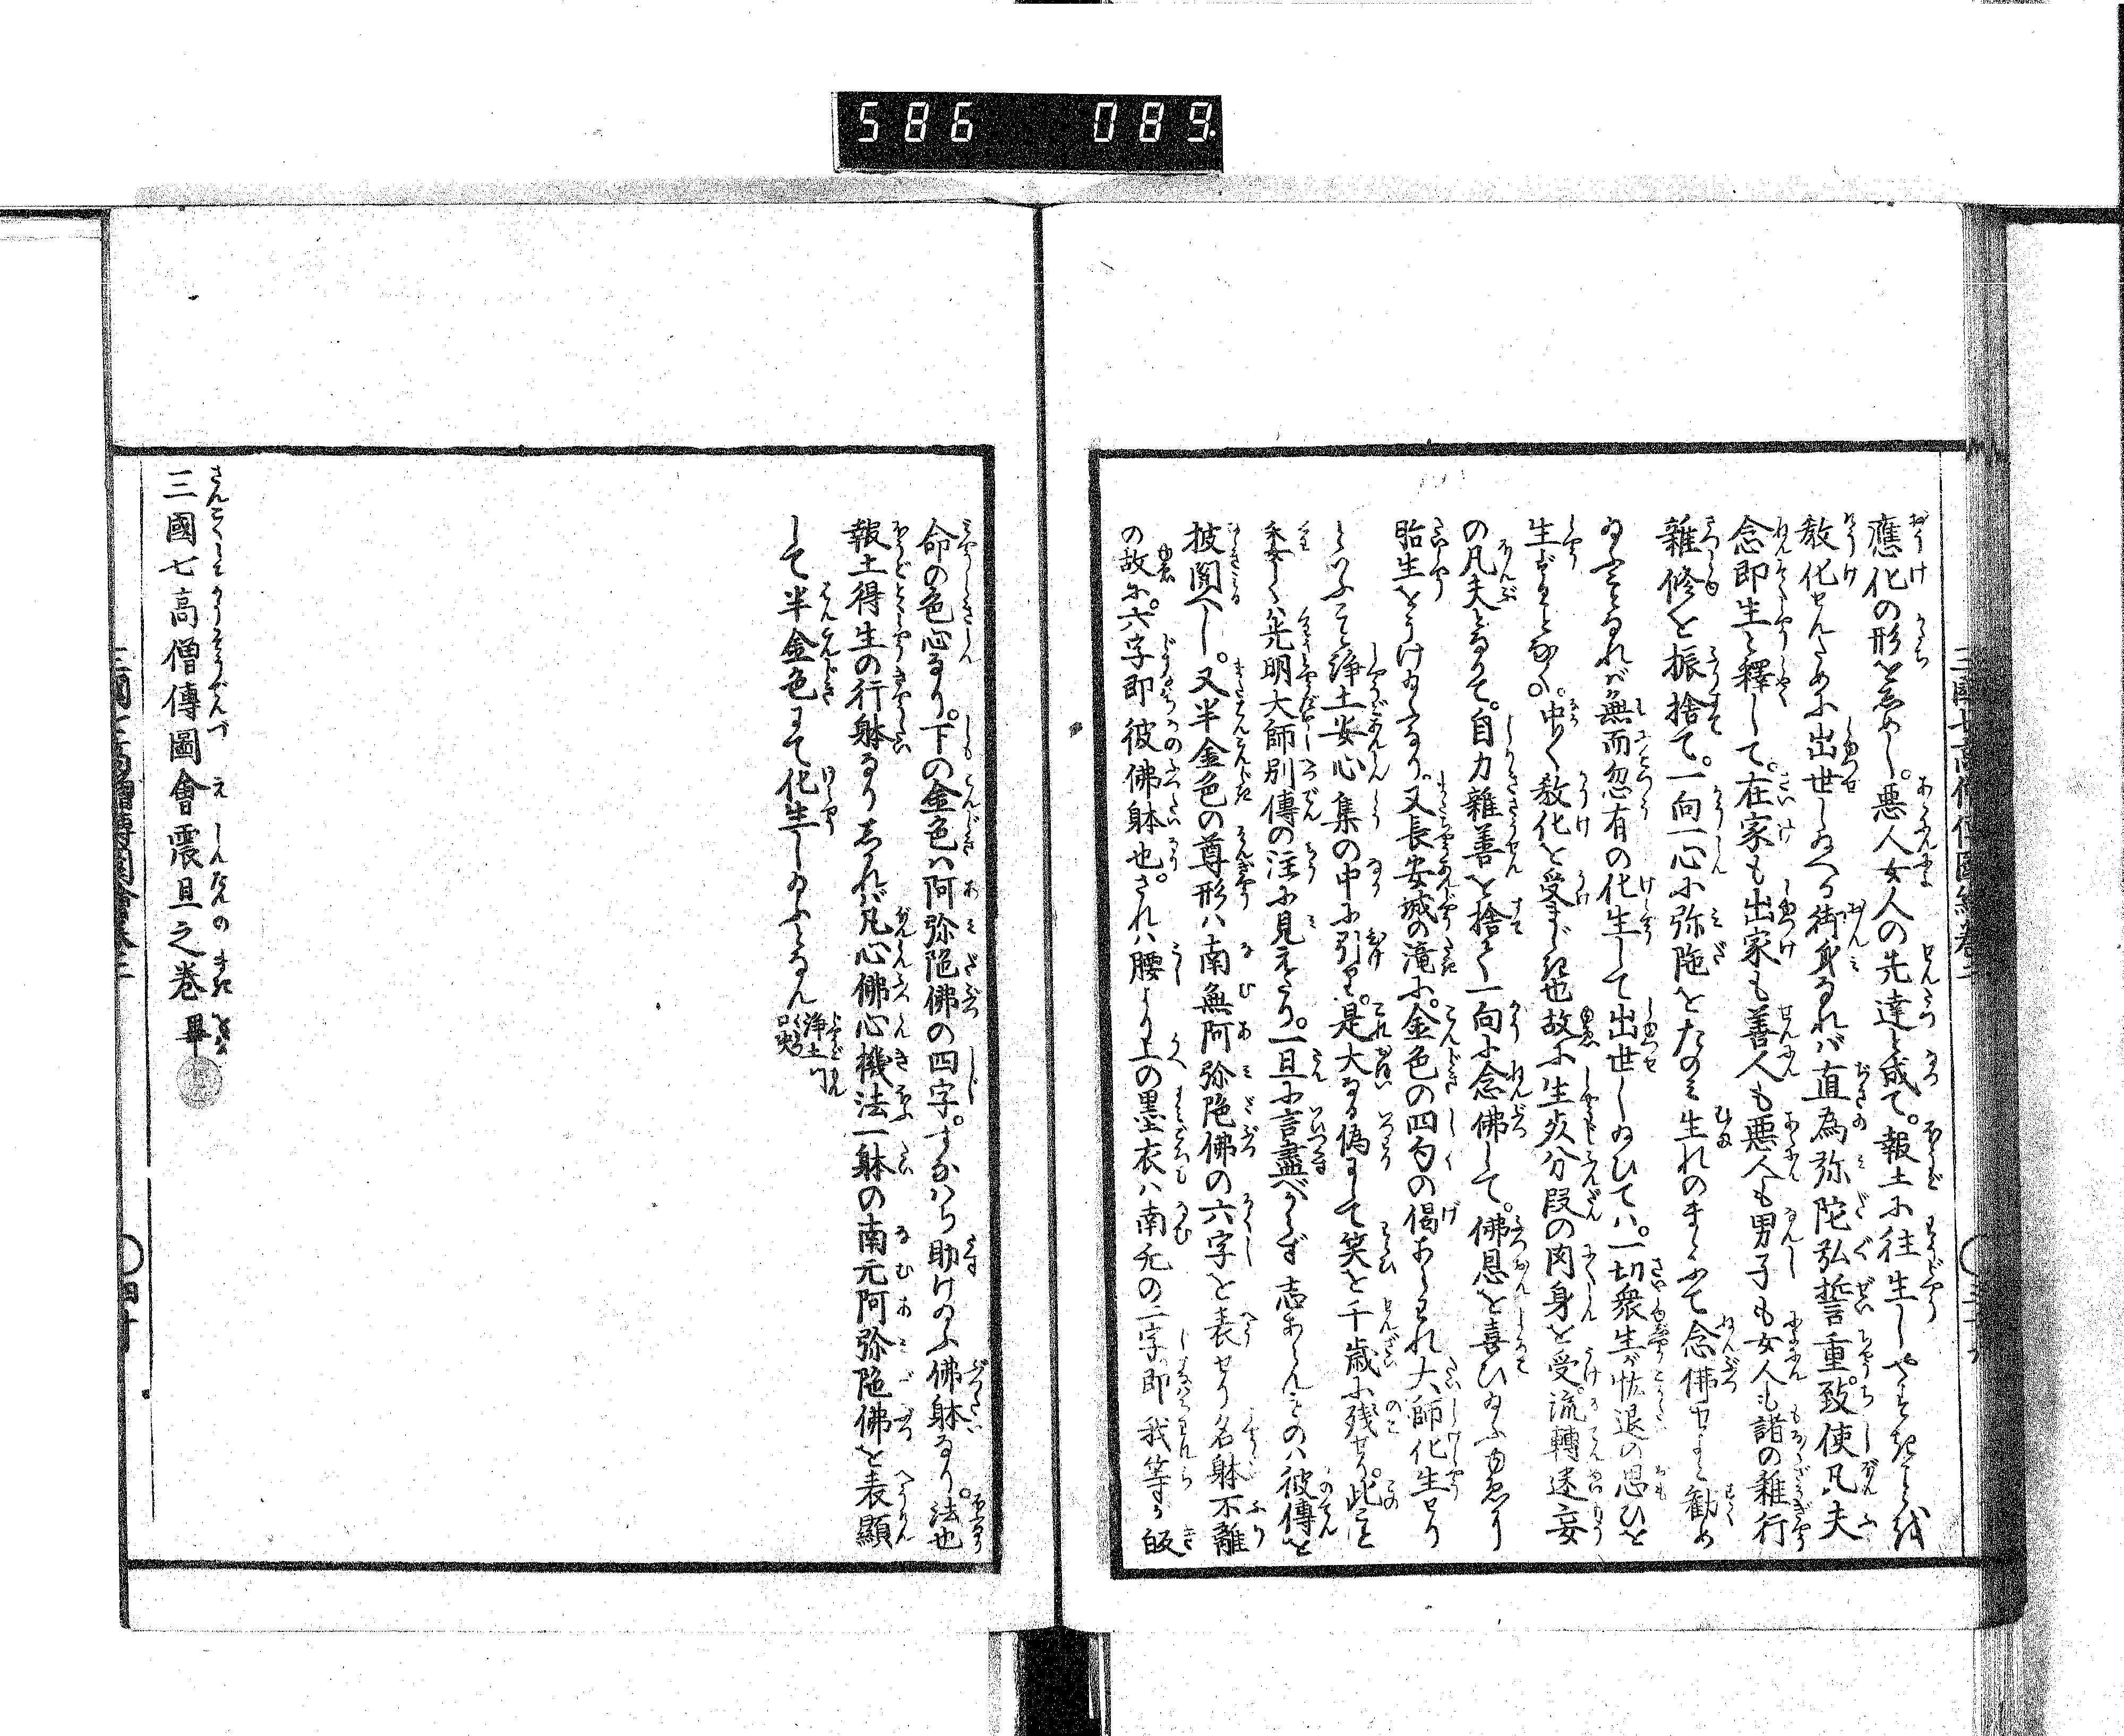 586 089.
應化の形を志めし。悪人女人の先達と成て。報土に往生しやすきことを
教化せんために出世し給へる御身なれバ直為弥陀弘誓重致使凡夫
念即生と釋して。在家も出家も善人も悪人も男子も女人も諸の雜行
雜修を振捨て。一向一心に弥陁をたのミ生れのまゝにて念佛せよと勧め
給ふことなれバ無而忽有の化生して出世し給ひてハ。一切衆生が怯退の思ひを
生ずまじとなく。中〱教化を受まじき也故に生死分段の肉身を受。流轉迷妄
の凡夫となりて。自力雜善を捨て一向に念佛して。佛恩を喜ひ給ふゆゑり
胎生をうけ給ふなり。又長安城の滝に。金色の四句の偈あらわれ大師化生せり
といふこと浄土安心集の中に引り。是大なる偽りにて笑を千歳に残せり。此こと
委しくハ光明大師別傳の注に見えたり。一旦に言盡べからず志あらんものハ彼傳を
披閲べし。又半金色の尊形ハ南無阿弥陁佛の六字を表せり名躰不離
の故に。六字即彼佛躰也。されハ腰より上の墨衣ハ南无の二字即我等が皈
命の色心なり。下の金色ハ阿弥陁佛の四字。すなハち助け給ふ佛躰なり。法也
報土得生の行躰なりされバ凡心佛心機法一躰の南无阿弥陁佛を表顯
して半金色にて化生し給ふとなん
三國七高僧傳圖會震旦之巻畢
三國七高僧傳圖會巻三
四十